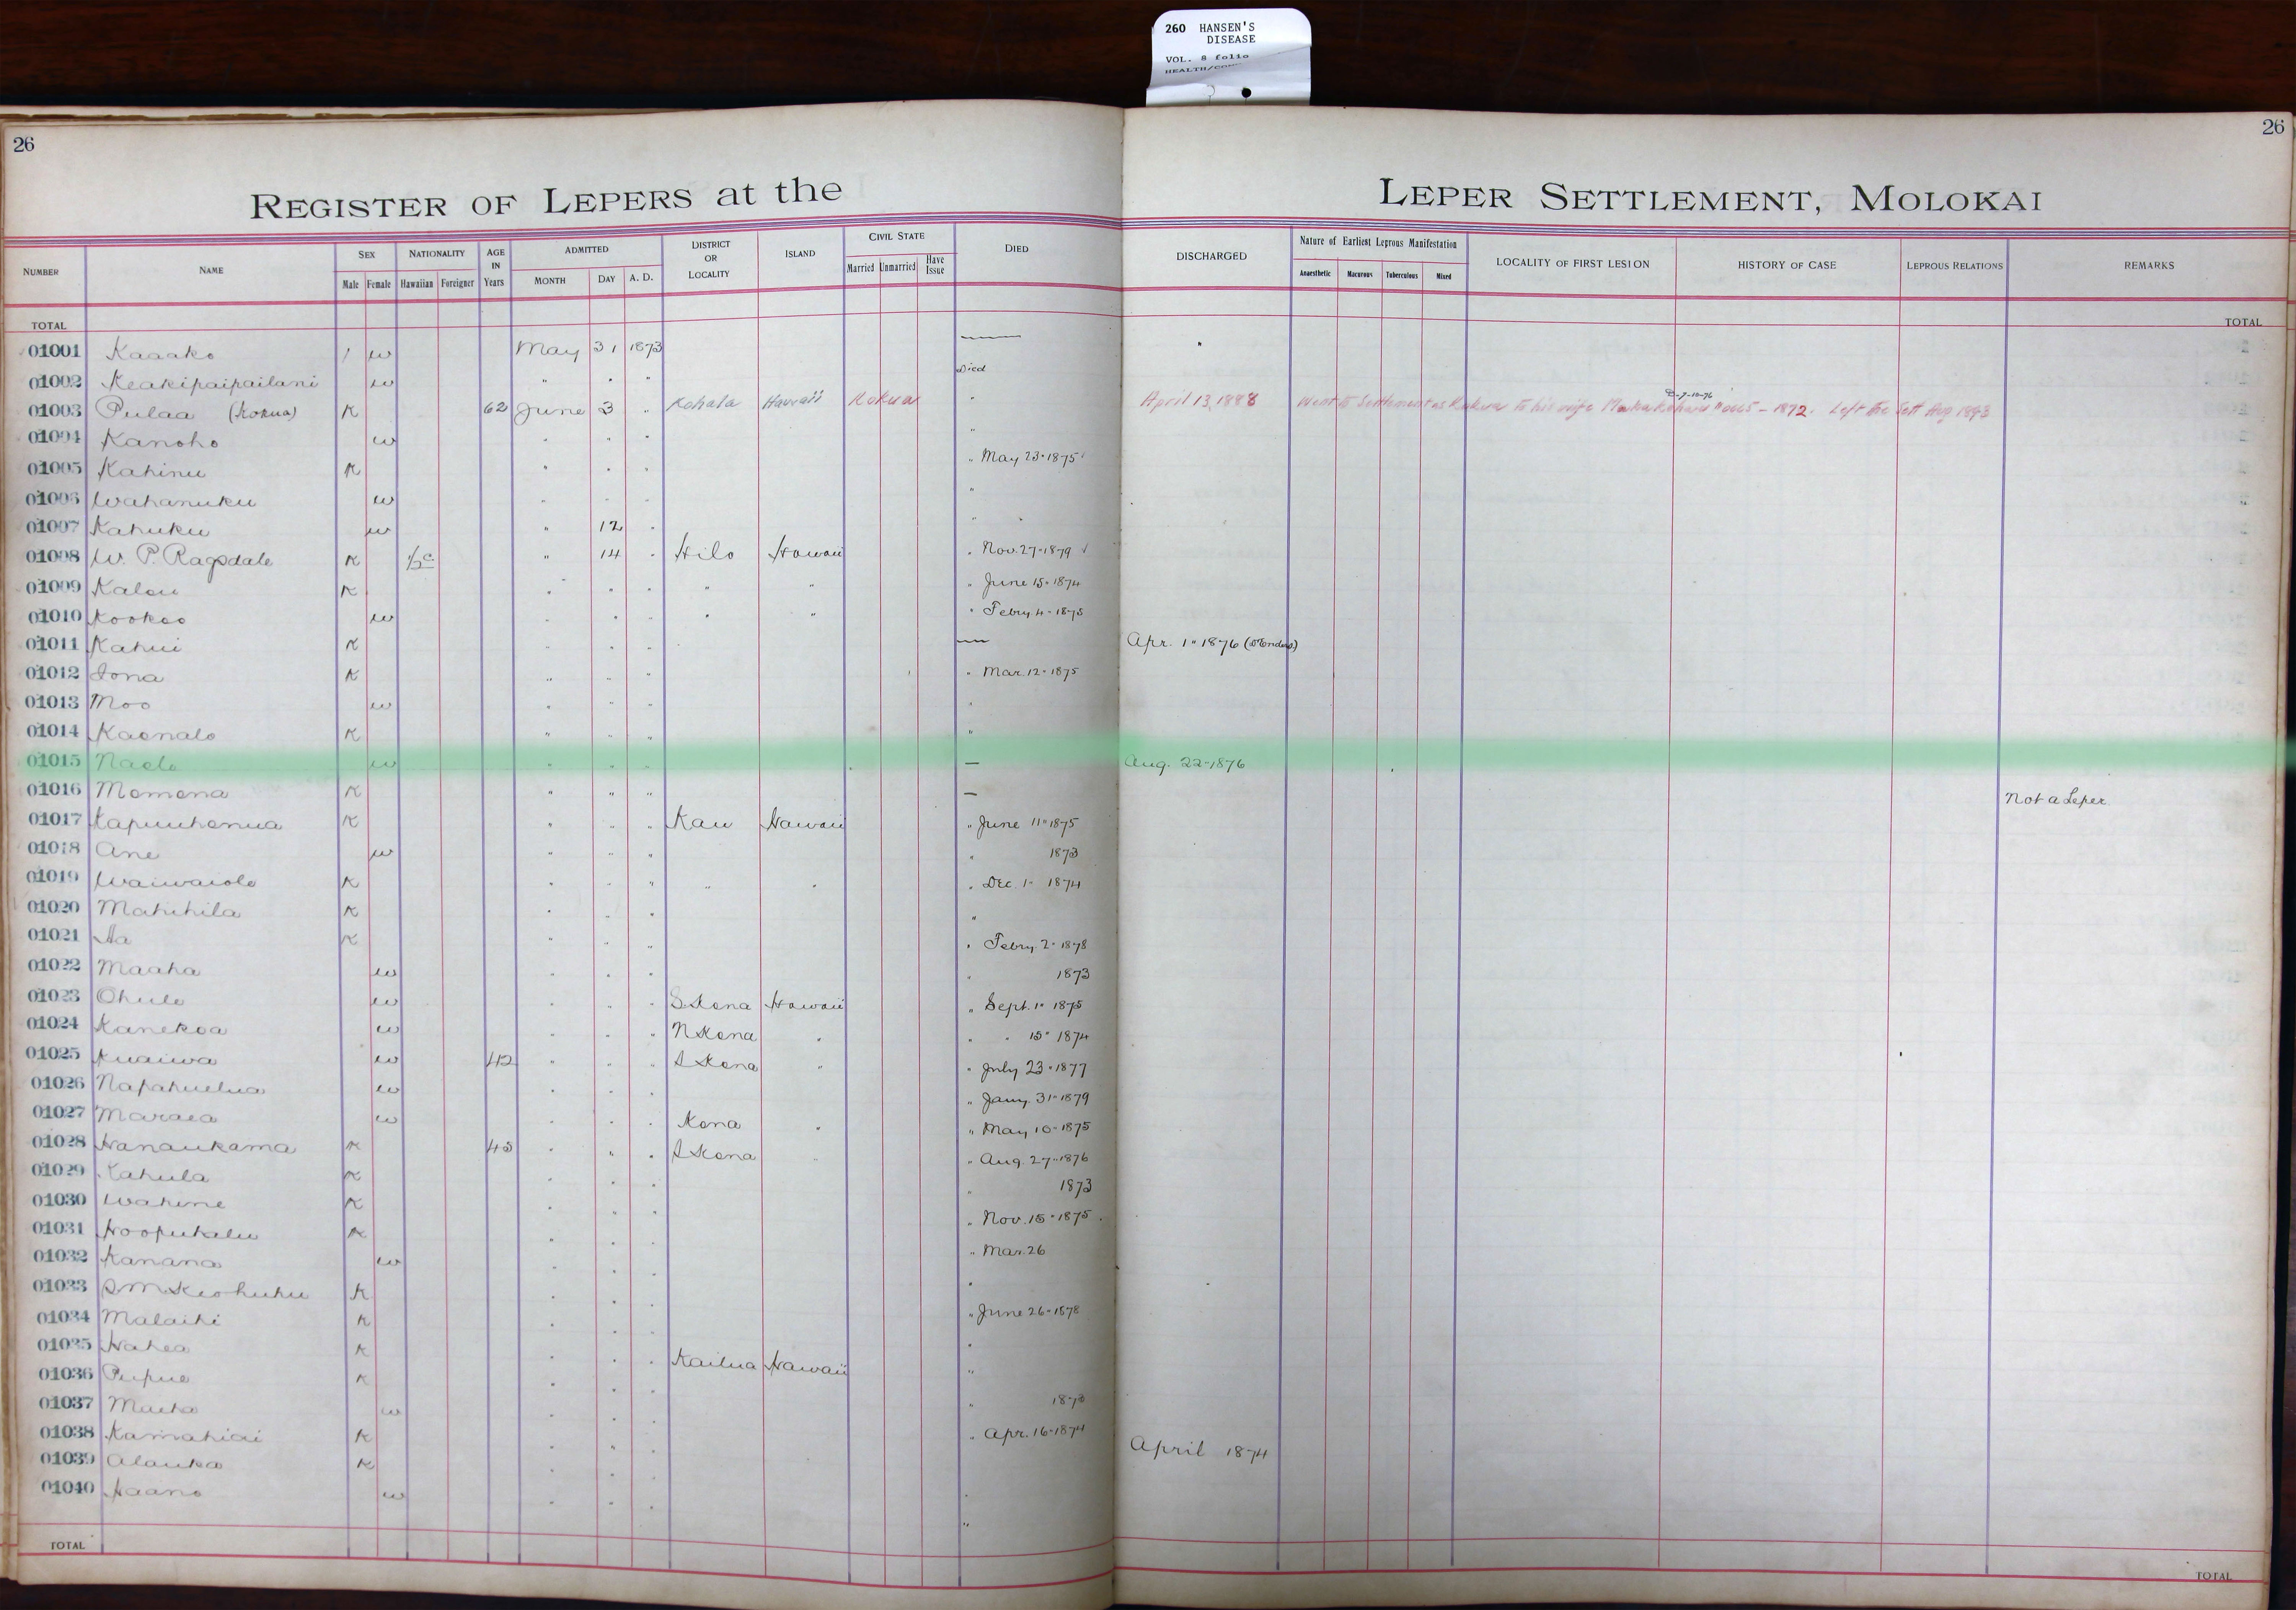 260 HANSEN'S
DISEASE
VOL. 8 folio
HEALTH/
26
26
REGISTER OF LEPERS at the LEPER SETTLEMENT, MOLOKAI
NUMBER NAME SEX NATIONALITY AGE IN Years ADMITTED DISTRICT OR LOCALITY ISLAND CIVIL STATE DIED DISCHARGED Nature of Earliest Leprous Manifestation LOCALITY OF FIRST LESION HISTORY OF CASE LEPROUS RELATIONS REMARKS
Male Female Hawaiian Foreigner MONTH DAY A. D. Married Unmarried Have Issue Anaesthetic Macurous Tuberculous Mixed
TOTAL TOTAL
01001 Kaaako / w May 31 1873 —
01002 Keakipaipailani w " " " Died
01003 Pulaa (Kokua) K 62 June 3 " Kohala Hawaii Kokua " April 13, 1888 Went to Settlement as Kokua to his wife 1872. Left the Sett Aug 1893
01004 Kanoho w " " " "
01005 Kahinu K " " " " May 23 1875
01006 Wahanuku w " " " "
01007 Kahuku w " 12 " "
01008 W. P. Ragsdale K ½ c " 14 " Hilo Hawaii " Nov. 27 1879
01009 Kalou K " " " " " " June 15 1874
01010 Kookoo w " " " " " " Febry 4 1875
01011 Kahui K " " " — Apr. 1 1876
01012 Iona K " " " " Mar. 12 1875
01013 Moo w " " " "
01014 Kaonalo K " " " "
01015 Naele w " " " — Aug. 22 1876
01016 Momona K " " " — Not a Leper
01017 Kapuuhonua K " " " Kau Hawaii " June 11 1875
01018 Ane w " " " " 1873
01019 Waiwaiole K " " " " " " Dec. 1 1874
01020 Mahihila K " " " "
01021 Aa K " " " " Febry. 2 1878
01022 Maaha w " " " " 1873
01023 Ohule w " " " S Kona Hawaii " Sept. 1 1875
01024 Kanekoa w " " " N Kona " " " 15 1874
01025 Kuaiwa w 42 " " " S Kona " " July 23 1877
01026 Napahuelua w " " " " Jany. 31 1879
01027 Maraea w " " " Kona " " May 10 1875
01028 Hanaukama K 45 " " " S Kona " " Aug. 27 1876
01029 Kahula K " " " " 1873
01030 Wahine K " " " " Nov. 15 1875
01031 Hoopukalu K " " " " Mar. 26
01032 Kanana w " " " "
01033 S M Keohuhu K " " " " June 26 1878
01034 Malaihi K " " " "
01035 Hahea K " " " Kailua Hawaii "
01036 Pupue K " " " " 1873
01037 w " " " " Apr. 16 1874
01038 Kamahiai K " " " April 1874
01039 Alauka K " " " "
01040 Haano w " " " "
TOTAL TOTAL